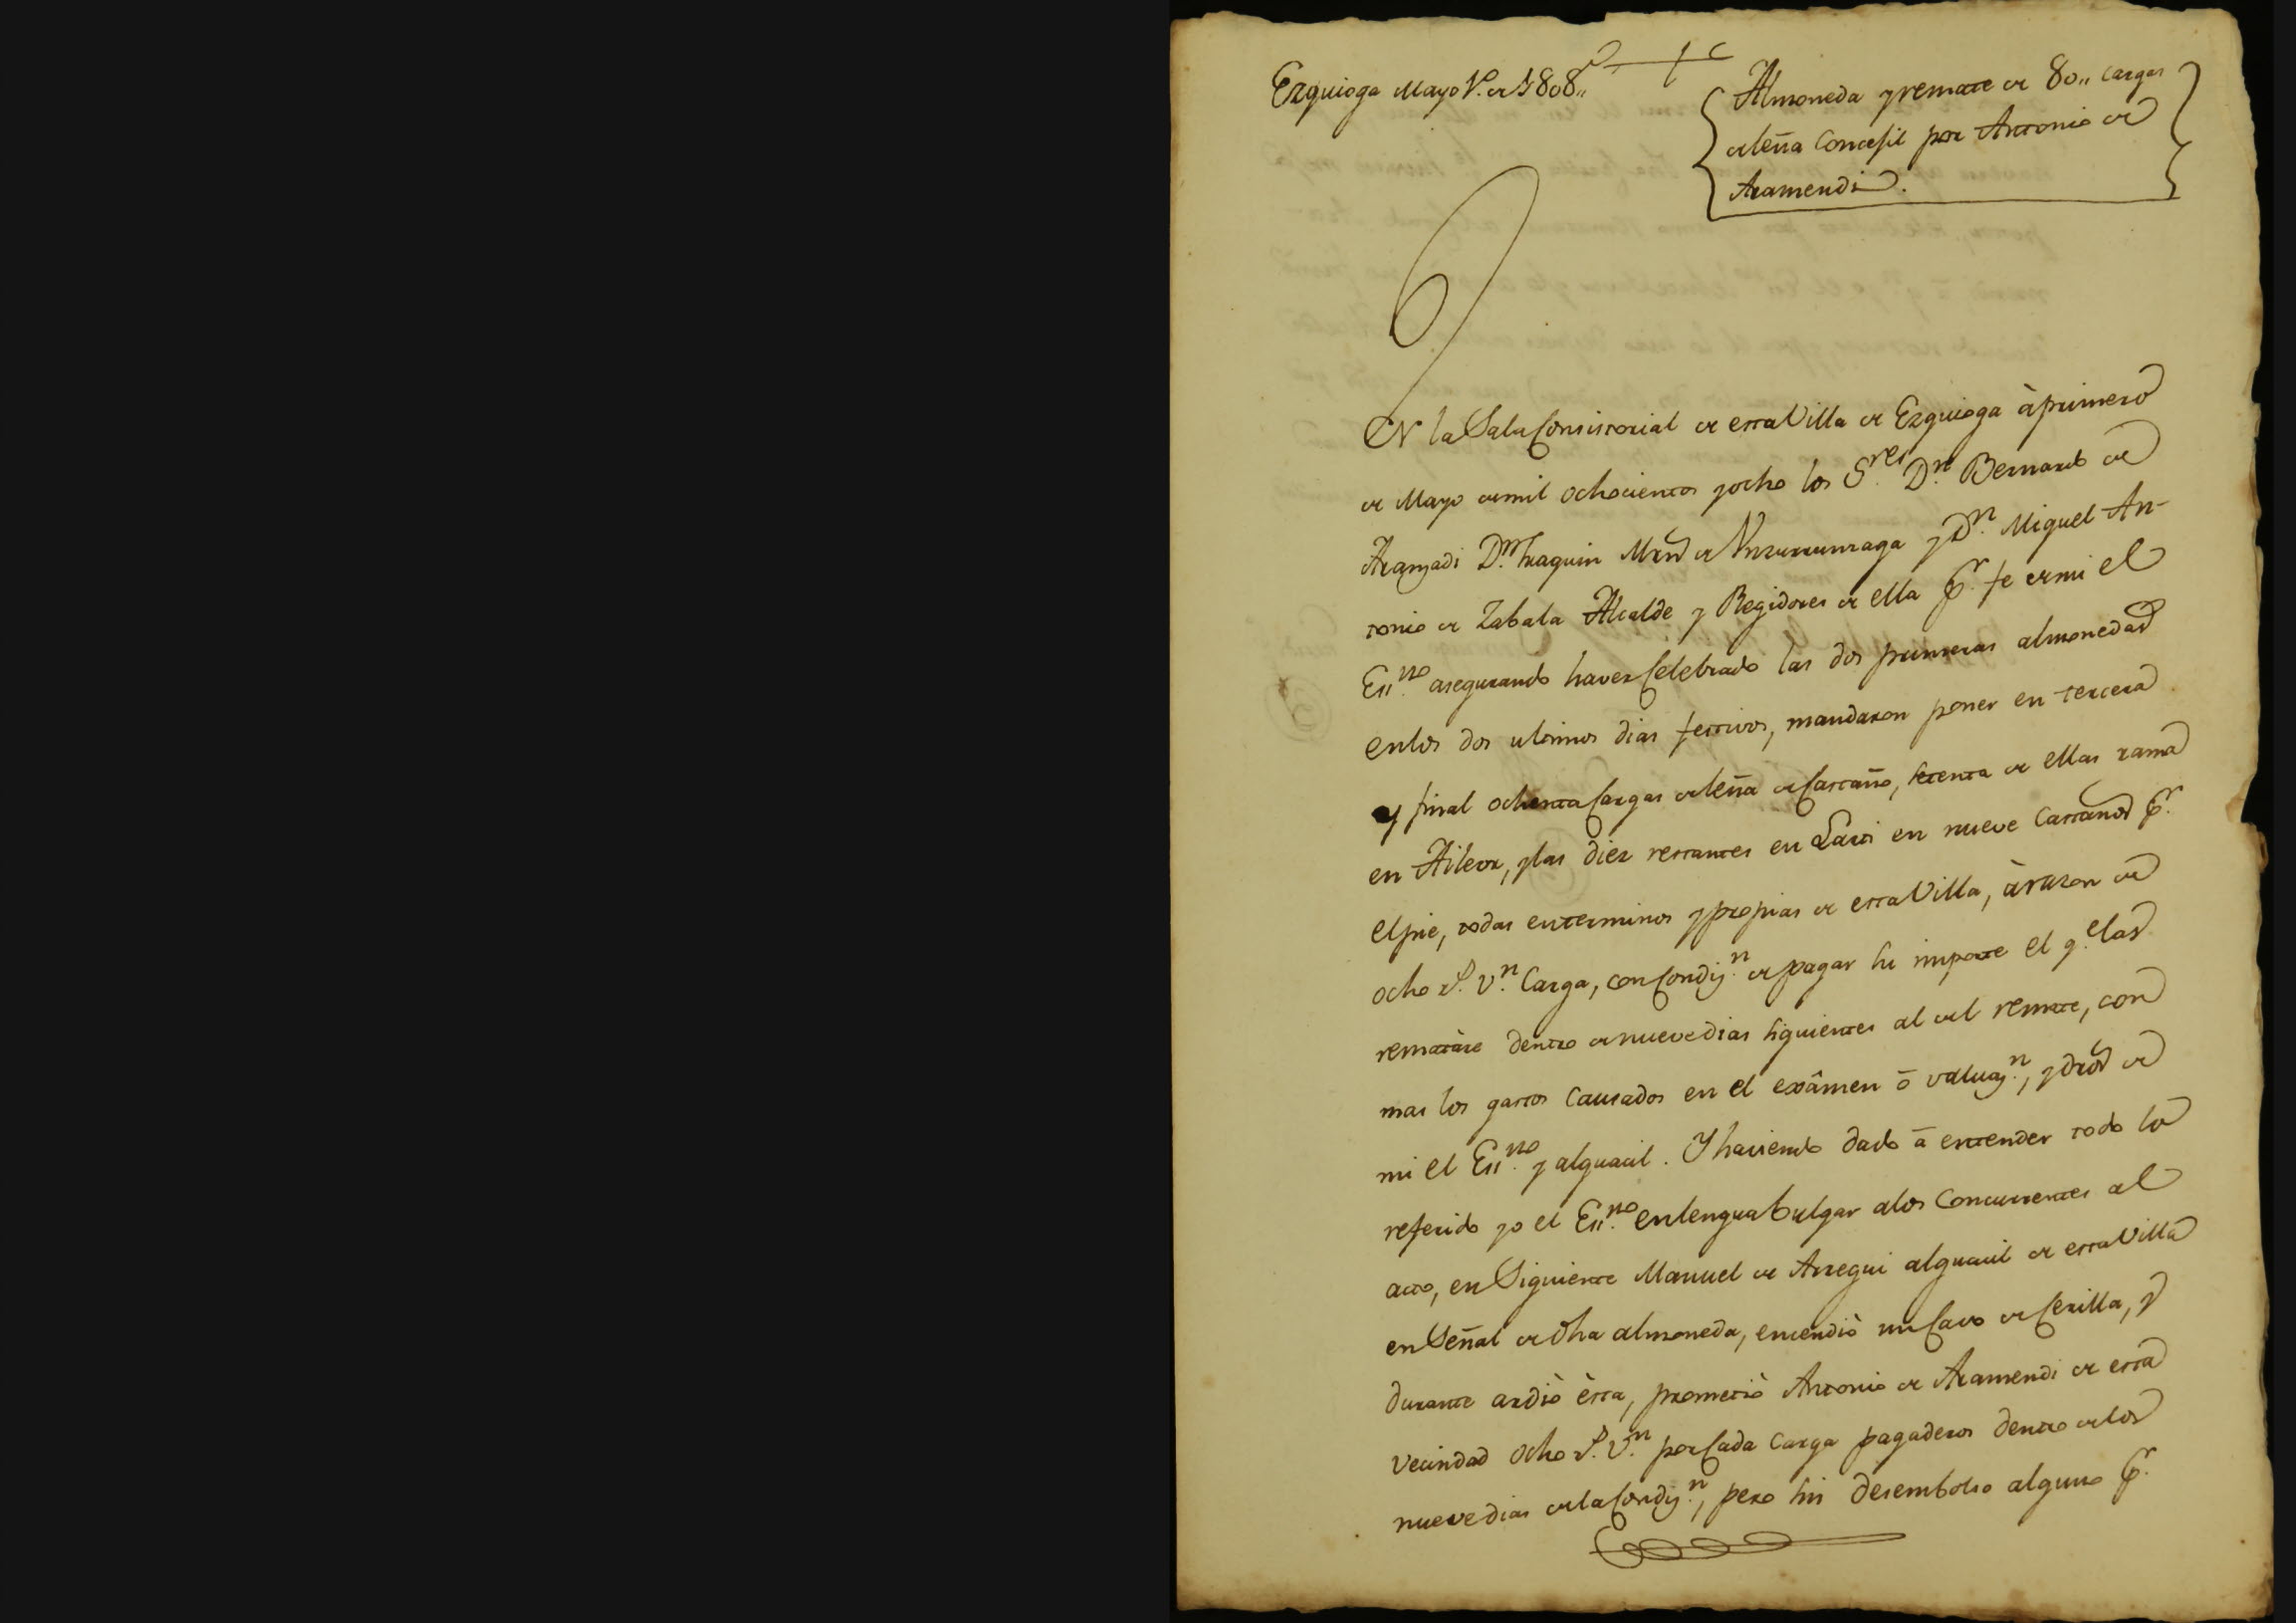 Ezquioga Mayo 1º. de 1808„
Almoneda y remate de 80„ cargas
de leña Concejil por Antonio de
Aramendi.
EN la Sala Consistorial de esta Villa de Ezquioga à primero
de Mayo de mil ochocientos y ocho los S.res D.n Bernardo de
Aranzadi D.n Joaquin Mrn de Unzurrunzaga y D.n Miguel An-
tonio de Zabala Alcalde y Regidores de ella p.r fe de mi el
Ess.no asegurando haver Celebrado las dos primeras almonedas
en los dos ultimos dias festivos, mandaron poner en tercera
y final ochenta Cargas de leña de Castaño, setenta de ellas rama
en Aileor, y las diez restantes en Larri en nueve Castaños p.r
el pie, todas en terminos y propias de esta Villa, à razon de
ocho r.s v.n Carga, con Condiz.n de pagar su importe el q.e las
rematàre dentro de nueve dias siguientes al del remate, con
mas los gastos Causados en el exâmen ô valuaz.n, y dros de
mi el Ess.no y alguacil. Y haviendo dado â entender todo lo
referido yo el Ess.no en lengua bulgar a los Concurrentes al
acto, en Siguiente Manuel de Arregui alguacil de esta Villa
en Señal de dha almoneda, encendiò un Cavo de Cerilla, y
durante ardiò èsta, prometiò Antonio de Aramendi de esta
vecindad ocho r.s v.n por Cada Carga pagaderos dentro de los
nueve dias de la Condiz.n, pero sin desembolso alguno p.r